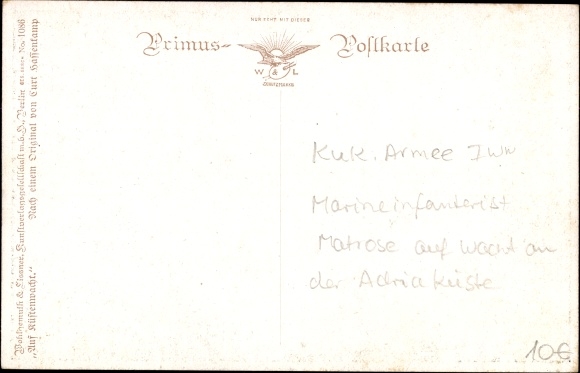 NUR ECHT MIT DIESER
Primus- Postkarte
W & L
KuK. Armee IWW
Marineinfanterist
Matrose auf Wacht an
der Adriaküste
10€
Wohlgemuth & Lissner, Kunstverlagsgesellschaft m.b.H., Berlin No. 1086
"Auf Küstenwacht." Nach einem Original von Curt Hassenkamp